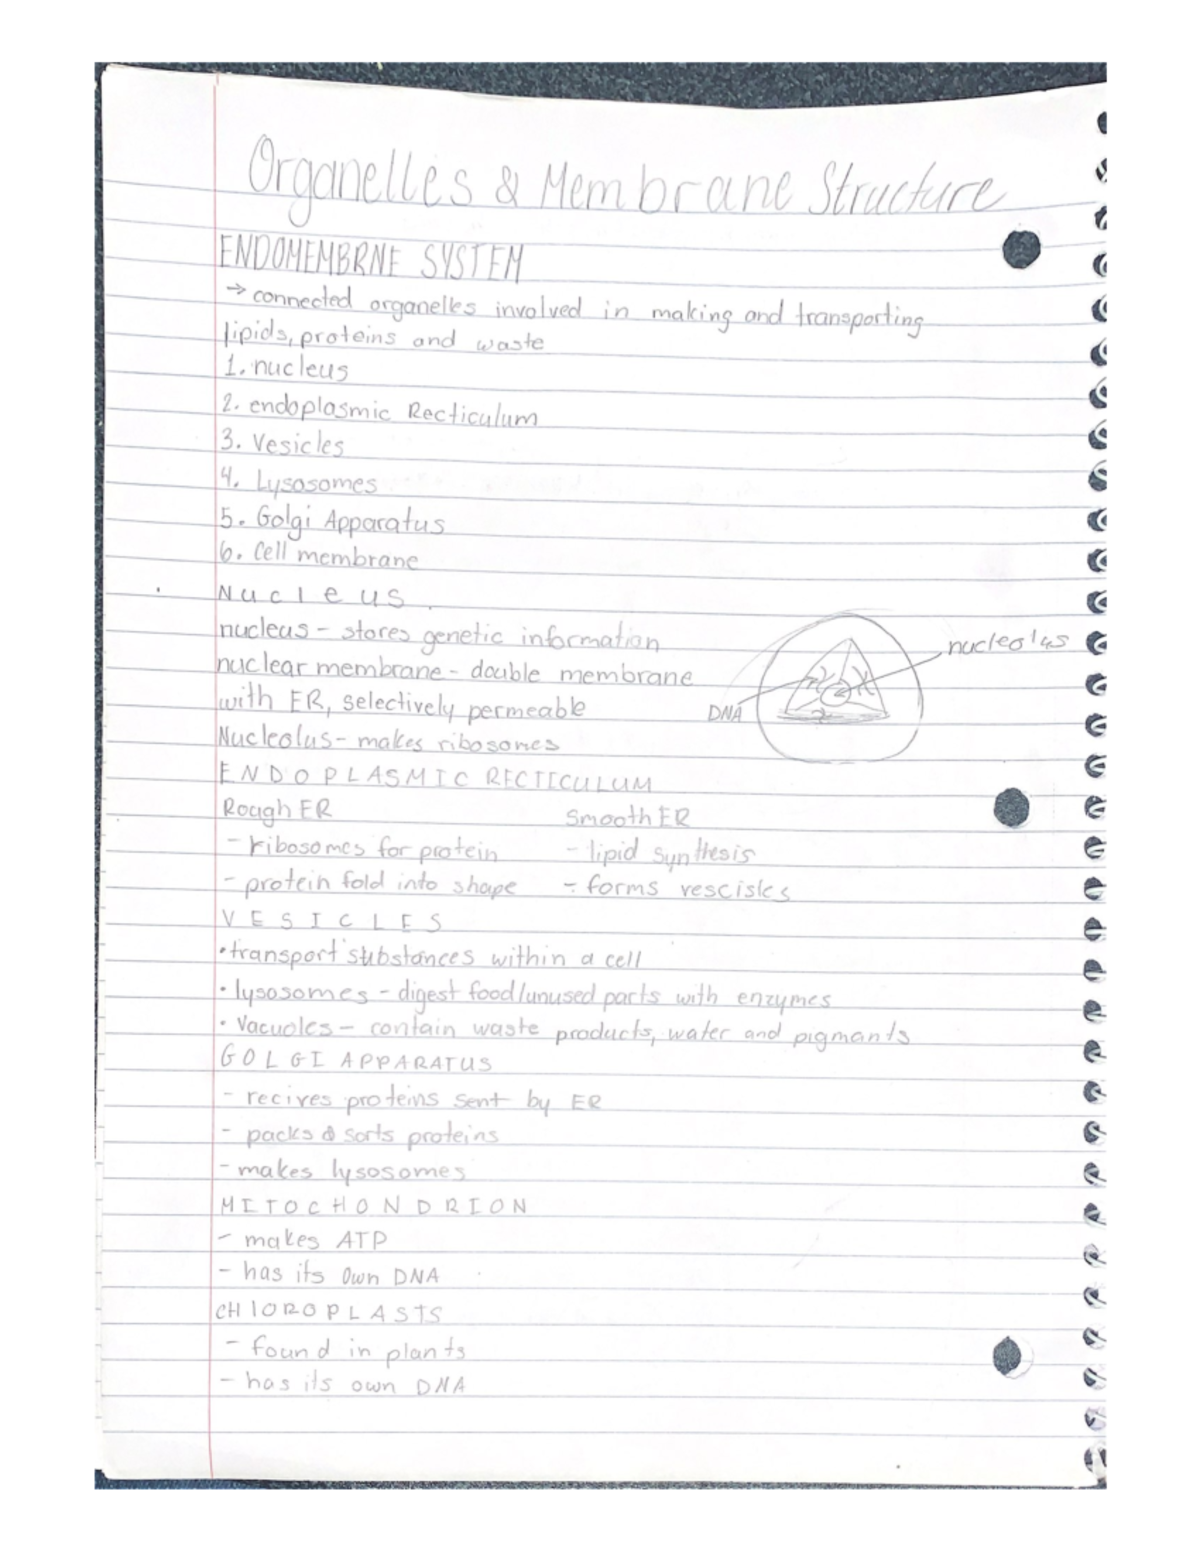 Organelles & Membrane Structure
ENDOMEMBRNE SYSTEM
→ connected organelles involved in making and transporting
lipids, proteins and waste
1. nucleus
2. endoplasmic Recticulum
3. Vesicles
4. Lysosomes
5. Golgi Apparatus
6. Cell membrane
Nucleus
nucleus - stores genetic information
nuclear membrane - double membrane
with ER, selectively permeable
Nucleolus - makes ribosomes
nucleolus
DNA
ENDOPLASMIC RECTICULUM
Rough ER Smooth ER
- ribosomes for protein - lipid synthesis
- protein fold into shape - forms vescisles
VESICLES
• transport substances within a cell
• lysosomes - digest food/unused parts with enzymes
• Vacuoles - contain waste products, water and pigmants
GOLGI APPARATUS
- recives proteins sent by ER
- packs & sorts proteins
- makes lysosomes
MITOCHONDRION
- makes ATP
- has its own DNA
CHlOROPLASTS
- found in plants
- has its own DNA